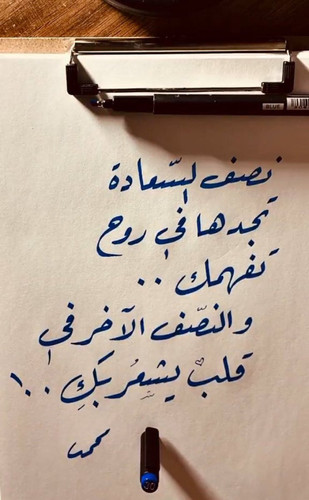 BLUE
نصف السّعادة
تجدها في روح
تفهمك ..
والنصّف الآخر في
قلبٌ يشعُر بكِ ..!
محمد